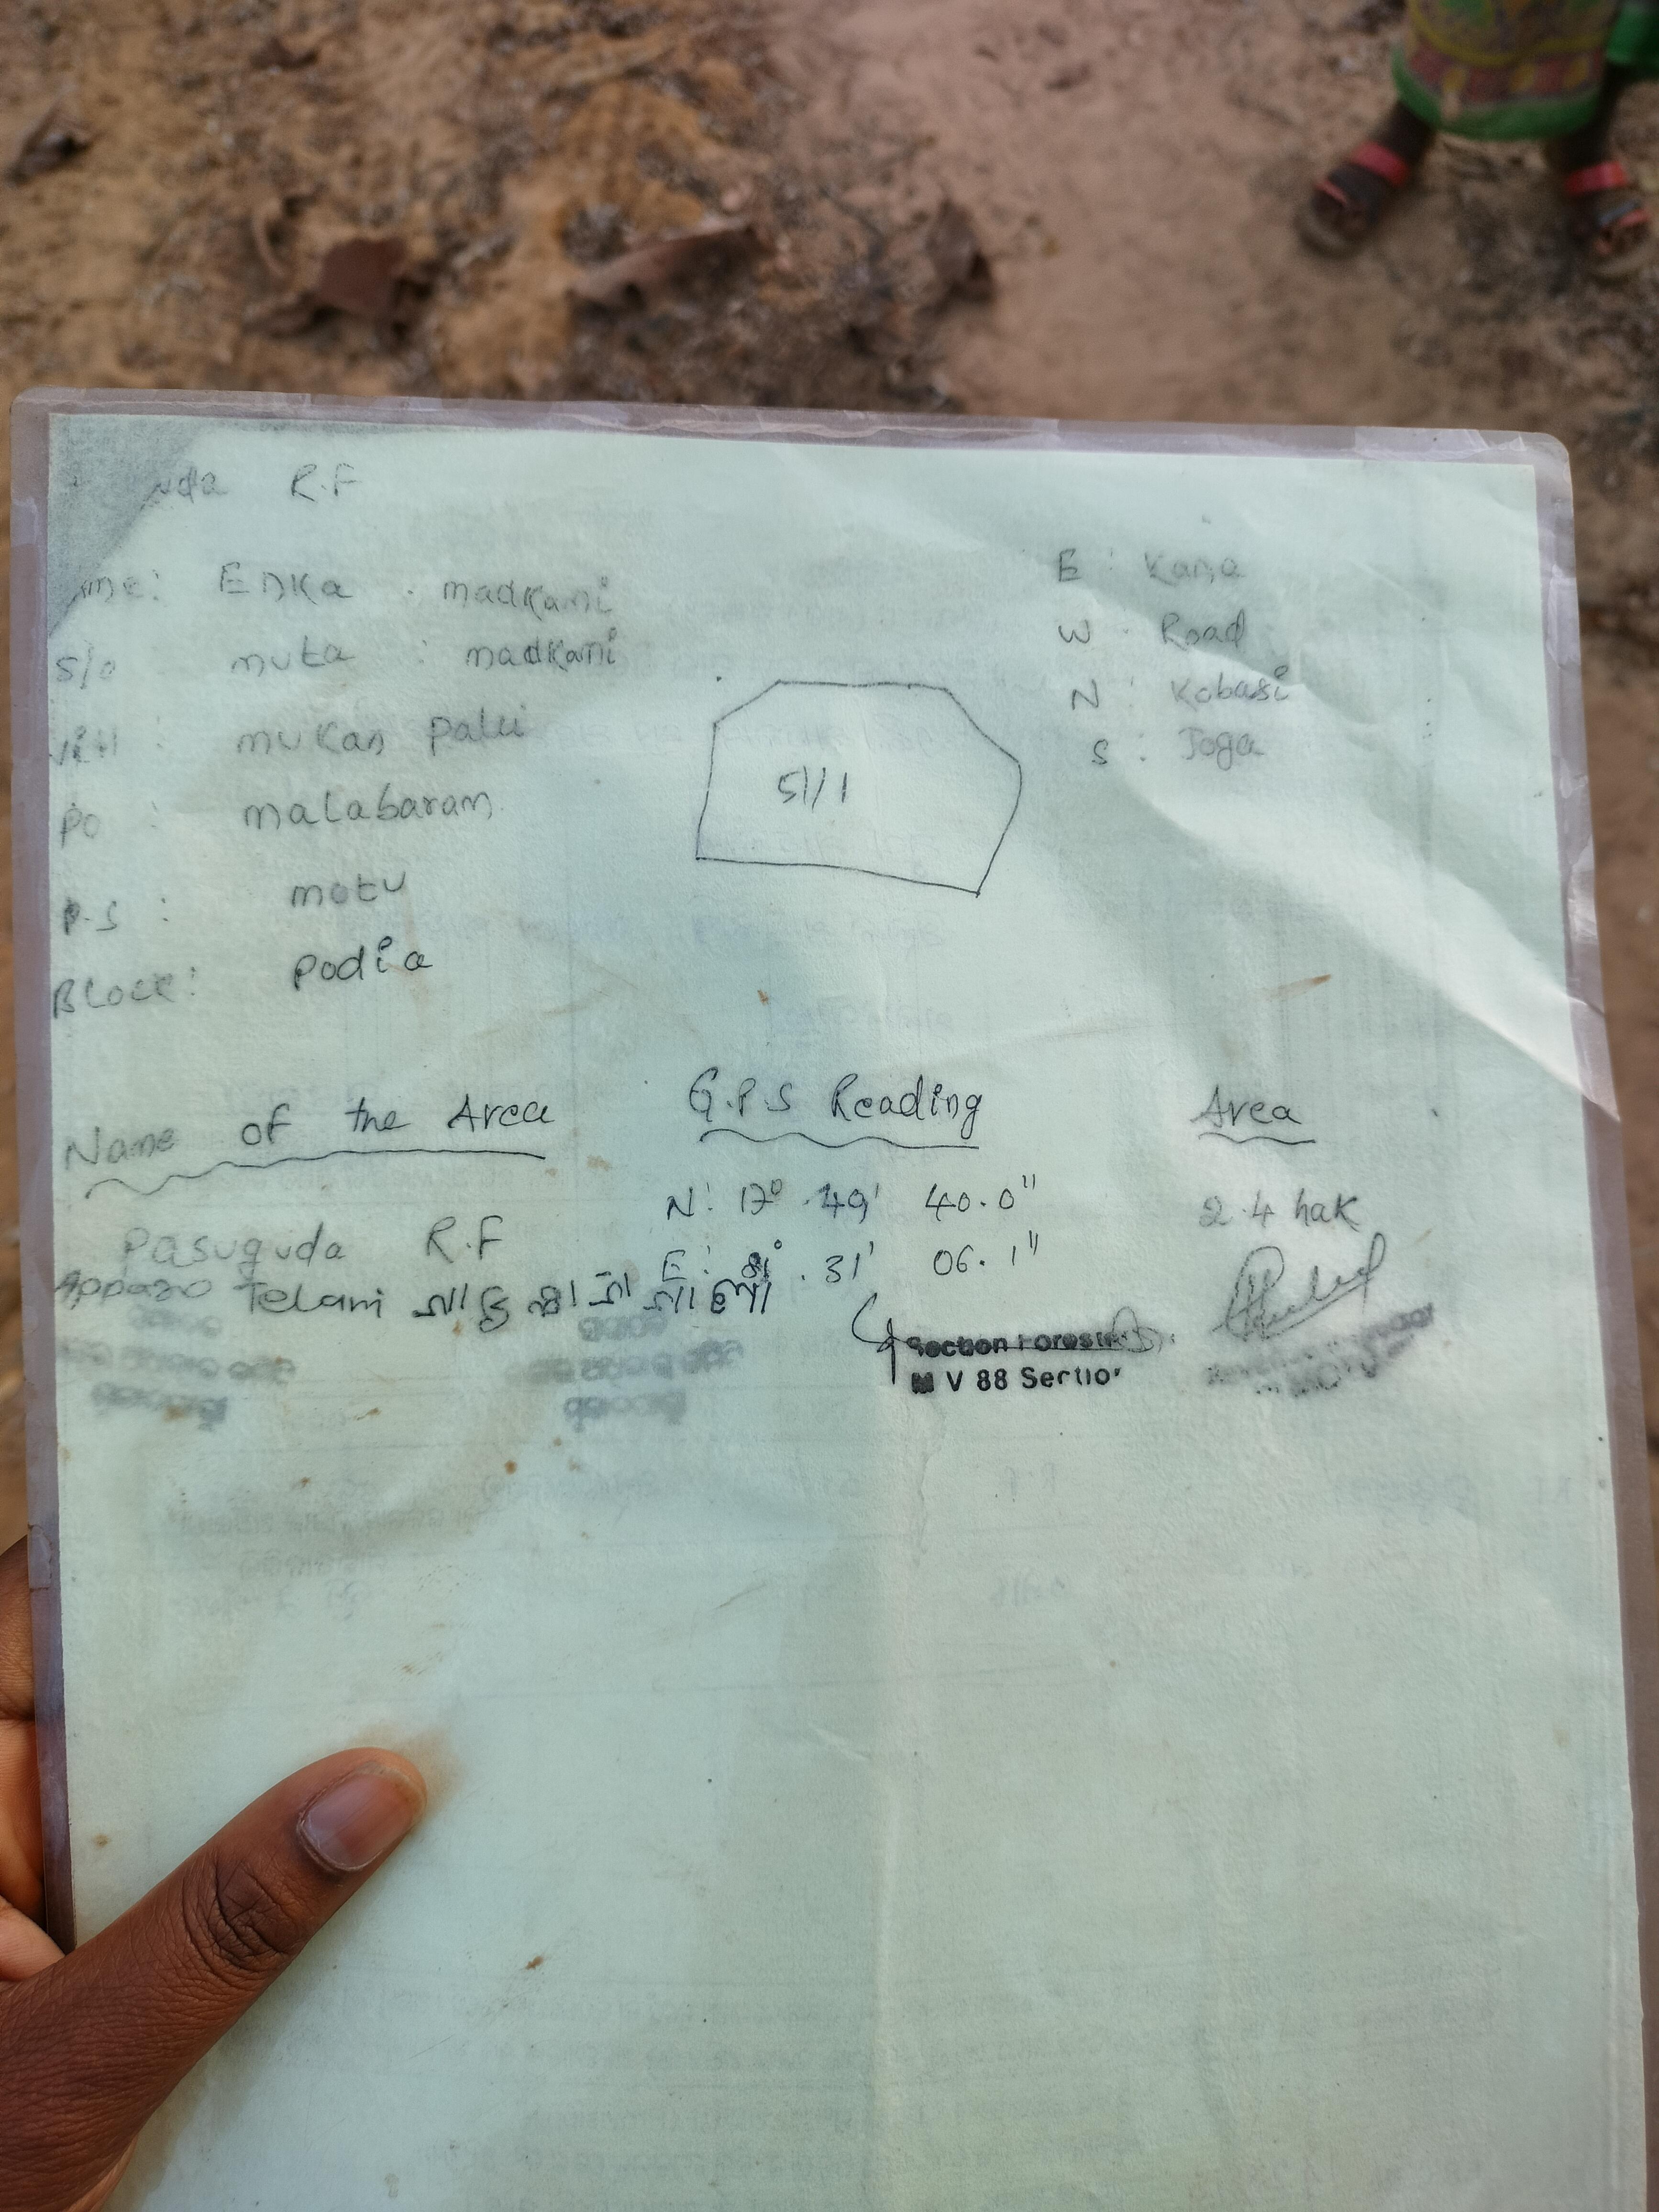 R.F
Enka . madkami
S/o muta : madkami
Vill : mukan palli
Po : malabaram
P.S : motu
Block: podia
E : Kama
W . Road
N : Kobasi
S : Joga
51/1
Name of the Area G.P.S Reading Area
N: 17° .49' 40.0" 2.4 hak
Pasuguda R.F
E: 81° .31' 06.1"
Apparao Telami
Section Forester
M V 88 Section